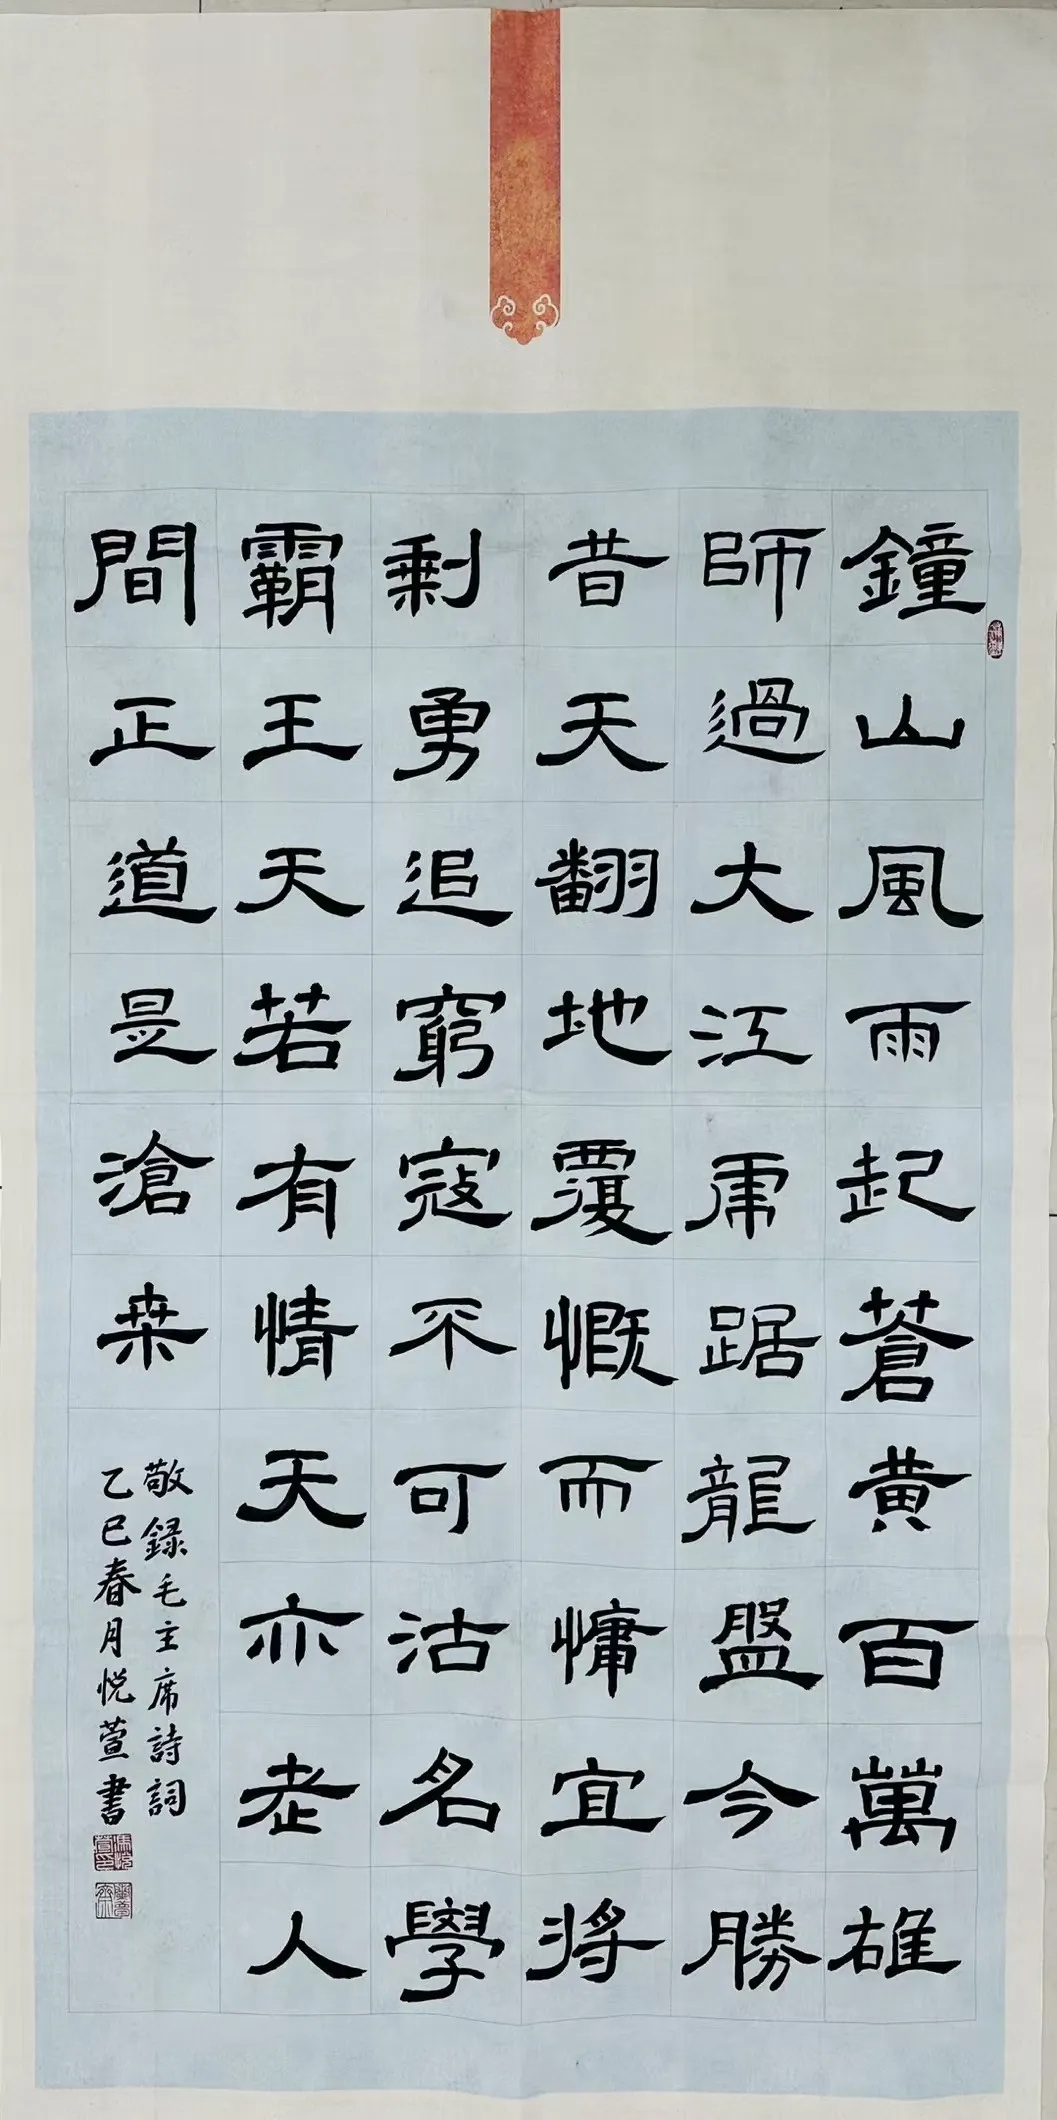 鐘山風雨起蒼黃百萬雄
師過大江虎踞龍盤今勝
昔天翻地覆慨而慷宜將
剩勇追窮寇不可沽名學
霸王天若有情天亦老人
間正道是滄桒
敬録毛主席詩詞
乙巳春月悦萱書